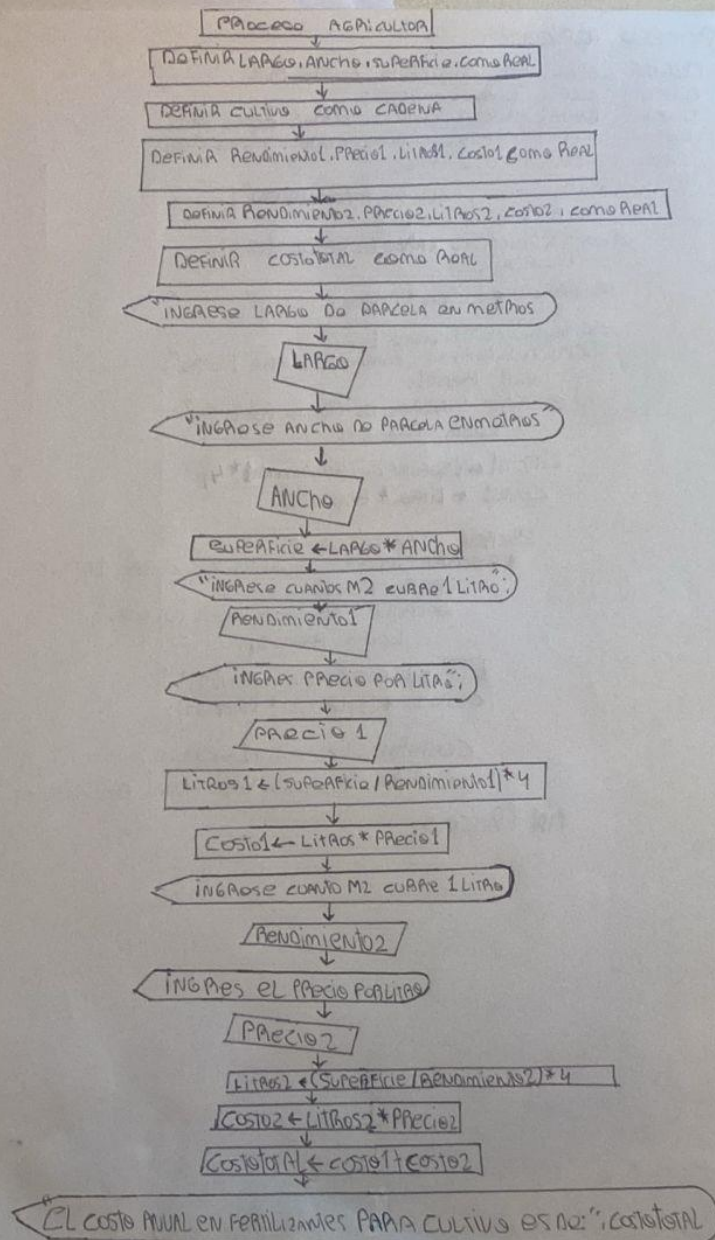 PROCESO AGRICULTOR
DEFINIR LARGO, ANCHO, SUPERFICIE, COMO REAL
DEFINIR CULTIVO COMO CADENA
DEFINIR RENDIMIENTO1, PRECIO1, LITROS1, COSTO1 COMO REAL
DEFINIR RENDIMIENTO2, PRECIO2, LITROS2, COSTO2, COMO REAL
DEFINIR COSTOTOTAL COMO REAL
"INGRESE LARGO DE PARCELA EN METROS
LARGO
"INGRESE ANCHO DE PARCELA EN METROS"
ANCHO
SUPERFICIE ← LARGO * ANCHO
"INGRESE CUANTOS M2 CUBRE 1 LITRO";
RENDIMIENTO1
INGRES PRECIO POR LITRO";
PRECIO 1
LITROS 1 ← (SUPERFICIE / RENDIMIENTO1) * 4
COSTO1 ← LITROS * PRECIO1
INGRESE CUANTO M2 CUBRE 1 LITRO
RENDIMIENTO2
INGRES EL PRECIO POR LITRO
PRECIO2
LITROS2 ← (SUPERFICIE / RENDIMIENTO2) * 4
COSTO2 ← LITROS2 * PRECIO2
COSTOTOTAL ← COSTO1 + COSTO2
"EL COSTO ANUAL EN FERTILIZANTES PARA CULTIVO ES DE:", COSTOTOTAL